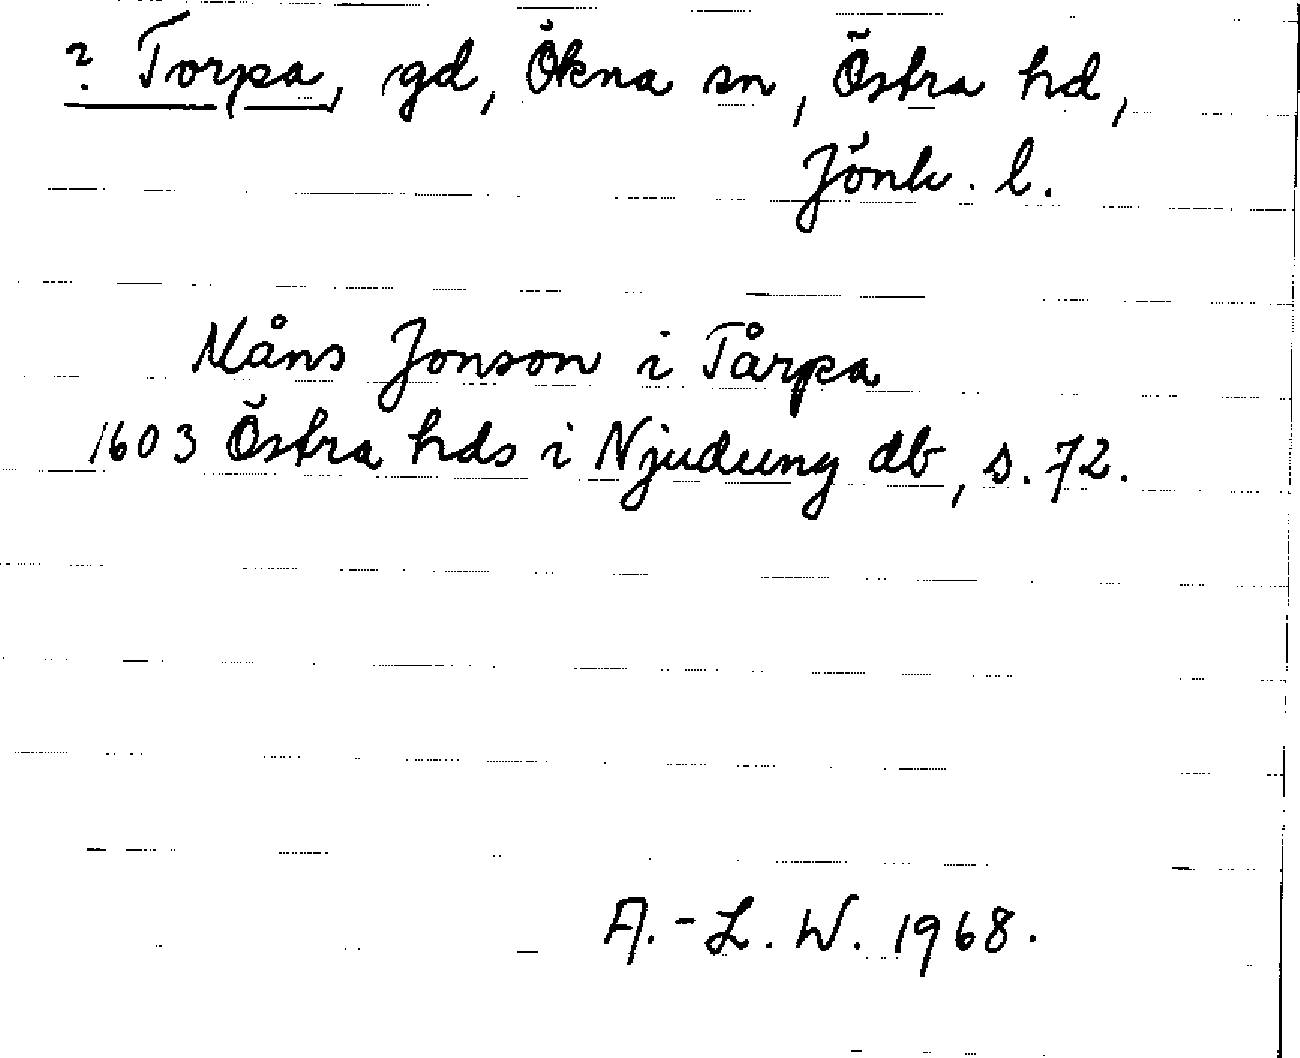 ? Torpa, gd, Ökna sn, Östra hd,
Jönk. l.
Måns Jonson i Tårpa
1603 Östra hds i Njudung db, s. 72.
A.-L. W. 1968.